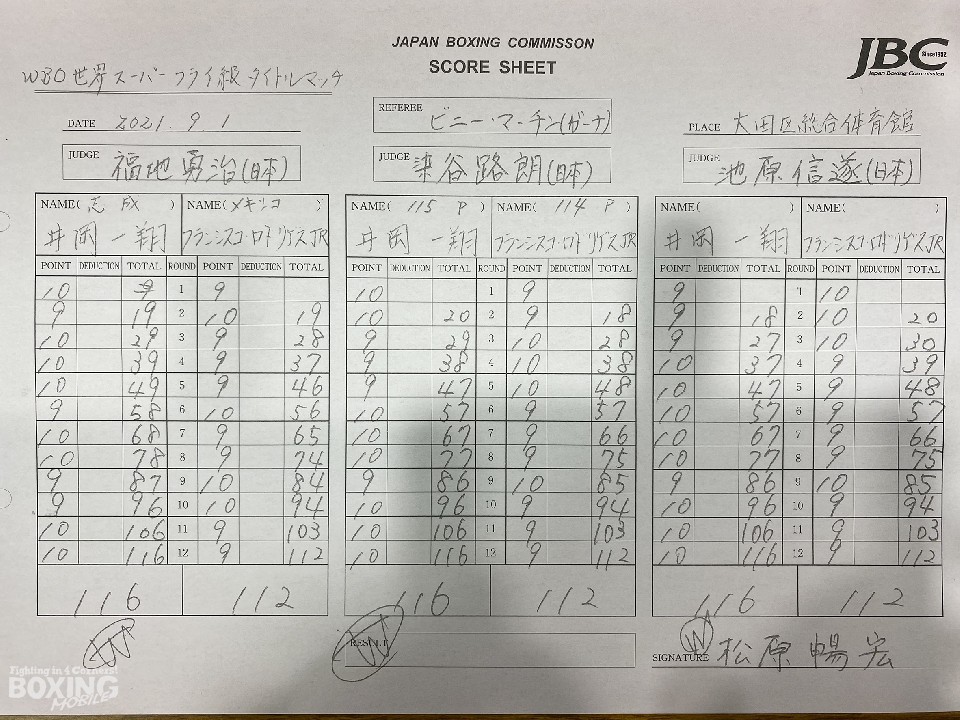 JAPAN BOXING COMMISSON
SCORE SHEET
JBC
Since1952
Japan Boxing Commission
WBO世界スーパーフライ級タイトルマッチ
DATE 2021.9.1
REFEREE ビニー・マーチン(ガーナ)
PLACE 大田区総合体育館
JUDGE 福地勇治(日本)
JUDGE 染谷路朗(日本)
JUDGE 池原信遂(日本)
NAME( 志成 ) NAME( メキシコ )
井岡一翔 フランシスコ・ロドリゲスJR
POINT DEDUCTION TOTAL ROUND POINT DEDUCTION TOTAL
10 9 1 9
9 19 2 10 19
10 29 3 9 28
10 39 4 9 37
10 49 5 9 46
9 58 6 10 56
10 68 7 9 65
10 78 8 9 74
9 87 9 10 84
9 96 10 10 94
10 106 11 9 103
10 116 12 9 112
116 112
W
NAME( 115 P ) NAME( 114 P )
井岡一翔 フランシスコ・ロドリゲスJR
POINT DEDUCTION TOTAL ROUND POINT DEDUCTION TOTAL
10 1 9
10 20 2 9 18
9 29 3 10 28
9 38 4 10 38
9 47 5 10 48
10 57 6 9 57
10 67 7 9 66
10 77 8 9 75
9 86 9 10 85
10 96 10 9 94
10 106 11 9 103
10 116 12 9 112
116 112
RESULT W
NAME( ) NAME( )
井岡一翔 フランシスコ・ロドリゲスJR
POINT DEDUCTION TOTAL ROUND POINT DEDUCTION TOTAL
9 1 10
9 18 2 10 20
9 27 3 10 30
10 37 4 9 39
10 47 5 9 48
10 57 6 9 57
10 67 7 9 66
10 77 8 9 75
9 86 9 10 85
10 96 10 9 94
10 106 11 9 103
10 116 12 9 112
116 112
W
SIGNATURE 松原暢宏
Fighting in 4 Corners!
BOXING
MOBILE